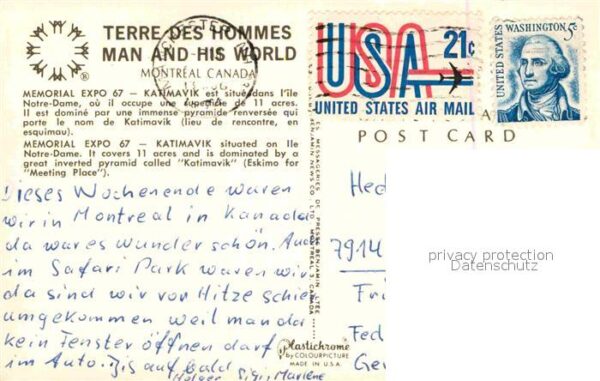 TERRE DES HOMMES
MAN AND HIS WORLD
MONTRÉAL CANADA
®
MEMORIAL EXPO 67 – KATIMAVIK est située dans l'île
Notre-Dame, où il occupe une superficie de 11 acres.
Il est dominé par une immense pyramide renversée qui
porte le nom de Katimavik (lieu de rencontre, en
esquimau).
MEMORIAL EXPO 67 – KATIMAVIK situated on Ile
Notre-Dame. It covers 11 acres and is dominated by a
great inverted pyramid called "Katimavik" (Eskimo for
"Meeting Place").
Dieses Wochenende waren
wir in Montreal in Kanada
da war es wunder schön. Auch
im Safari Park waren wir
da sind wir vor Hitze schier
umgekommen weil man da
kein Fenster öffnen darf
im Auto. Bis auf bald
Holger Sigi Marlene
LES MESSAGERIES DE PRESSE BENJAMIN LTÉE
BENJAMIN NEWS CO. LTD. MONTREAL 3, CANADA
Plastichrome
by COLOURPICTURE
MADE IN U.S.A.
USA 21c
UNITED STATES AIR MAIL
UNITED STATES
WASHINGTON 5c
POST CARD
Hec
7914
Fri
Fed
privacy protection
Datenschutz